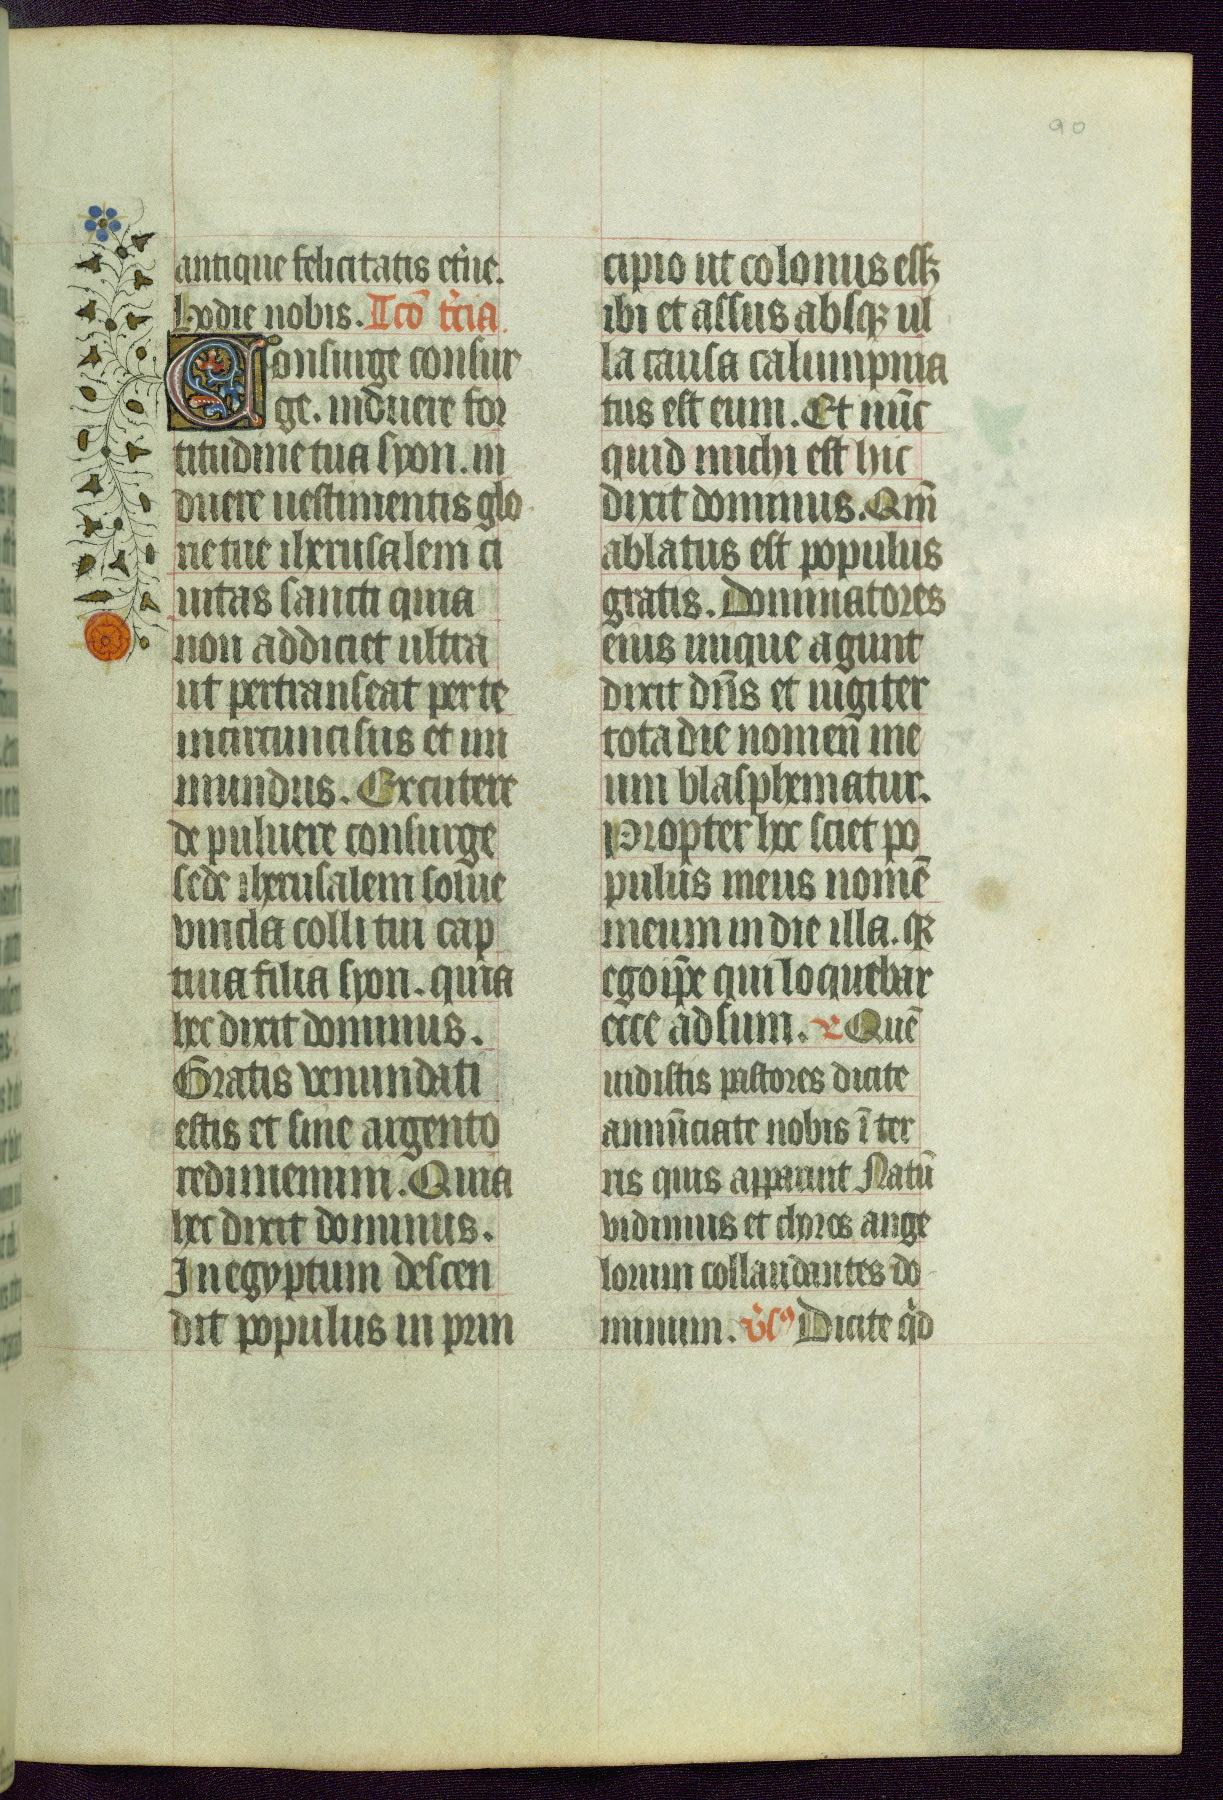 90
antique felicitatis et̾ne.
Hodie nobis. Lc̅o t̾cia.
Consurge consur
ge. induere for
titudine tua syon. in
duere uestimentis glo
rie tue iherusalem ci
uitas sancti quia
non addiciet ultra
ut pertranseat per te
incircuncisus et im
mundus. Excutere
de puluere consurge
sede iherusalem solue
vincla colli tui cap
tiua filia syon. quia
hec dixit dominus.
Gratis venundati
estis et sine argento
redimemini. Quia
hec dixit dominus.
In egyptum descen
dit populus in prin
cipio ut colonus ess&
ibi et assus absqꝫ ul
la causa calumpnia
tus est eum. Et nu̅c
quid michi est hic
dixit dominus. Qm̅
ablatus est populus
gratis. Dominatores
eius inique agunt
dixit dn̅s et iugiter
tota die nomen me
um blasphematur.
Propter hoc sciet po
pulus meus nome̅
meum in die illa. qꝛ
ego ip̅e qui loquebar
ecce adsum. r Que̅
uidistis pastores dicite
annu̅ciate nobis i̅ ter
ris quis apparuit Natu̅
vidimus et choros ange
lorum collaudantes do
minum. v̾sꝰ Dicite qͥd